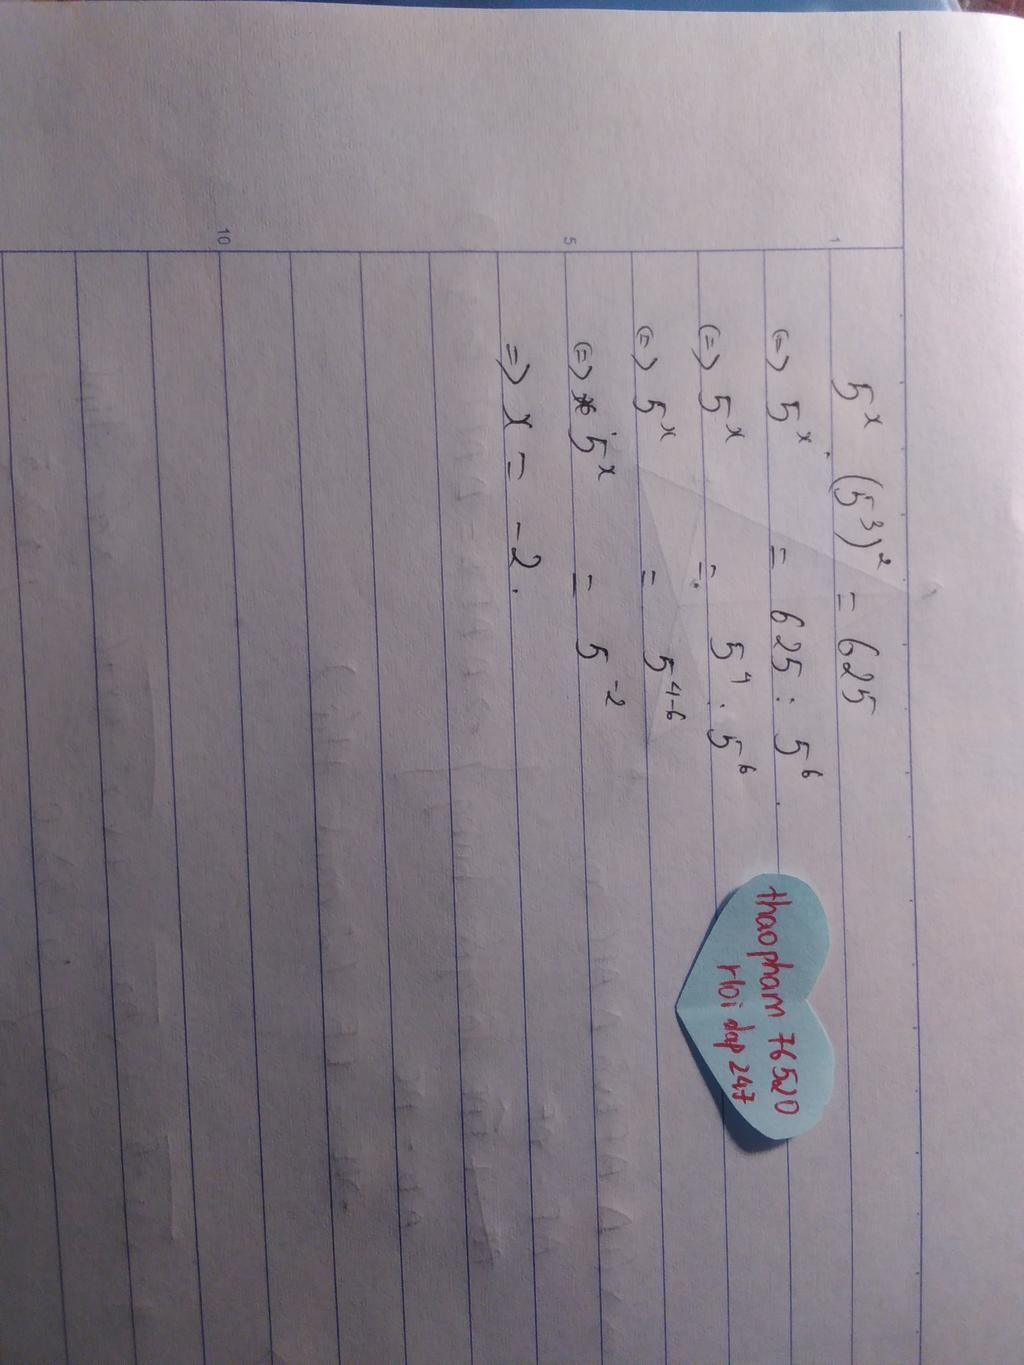 5^x . (5^3)^2 = 625
(=) 5^x = 625 : 5^6
(=) 5^x = 5^4 : 5^6
(=) 5^x = 5^4-6
(=) 5^x = 5^-2
=) x = -2.
thaopham 76520
Hoi dap 247
1
5
10